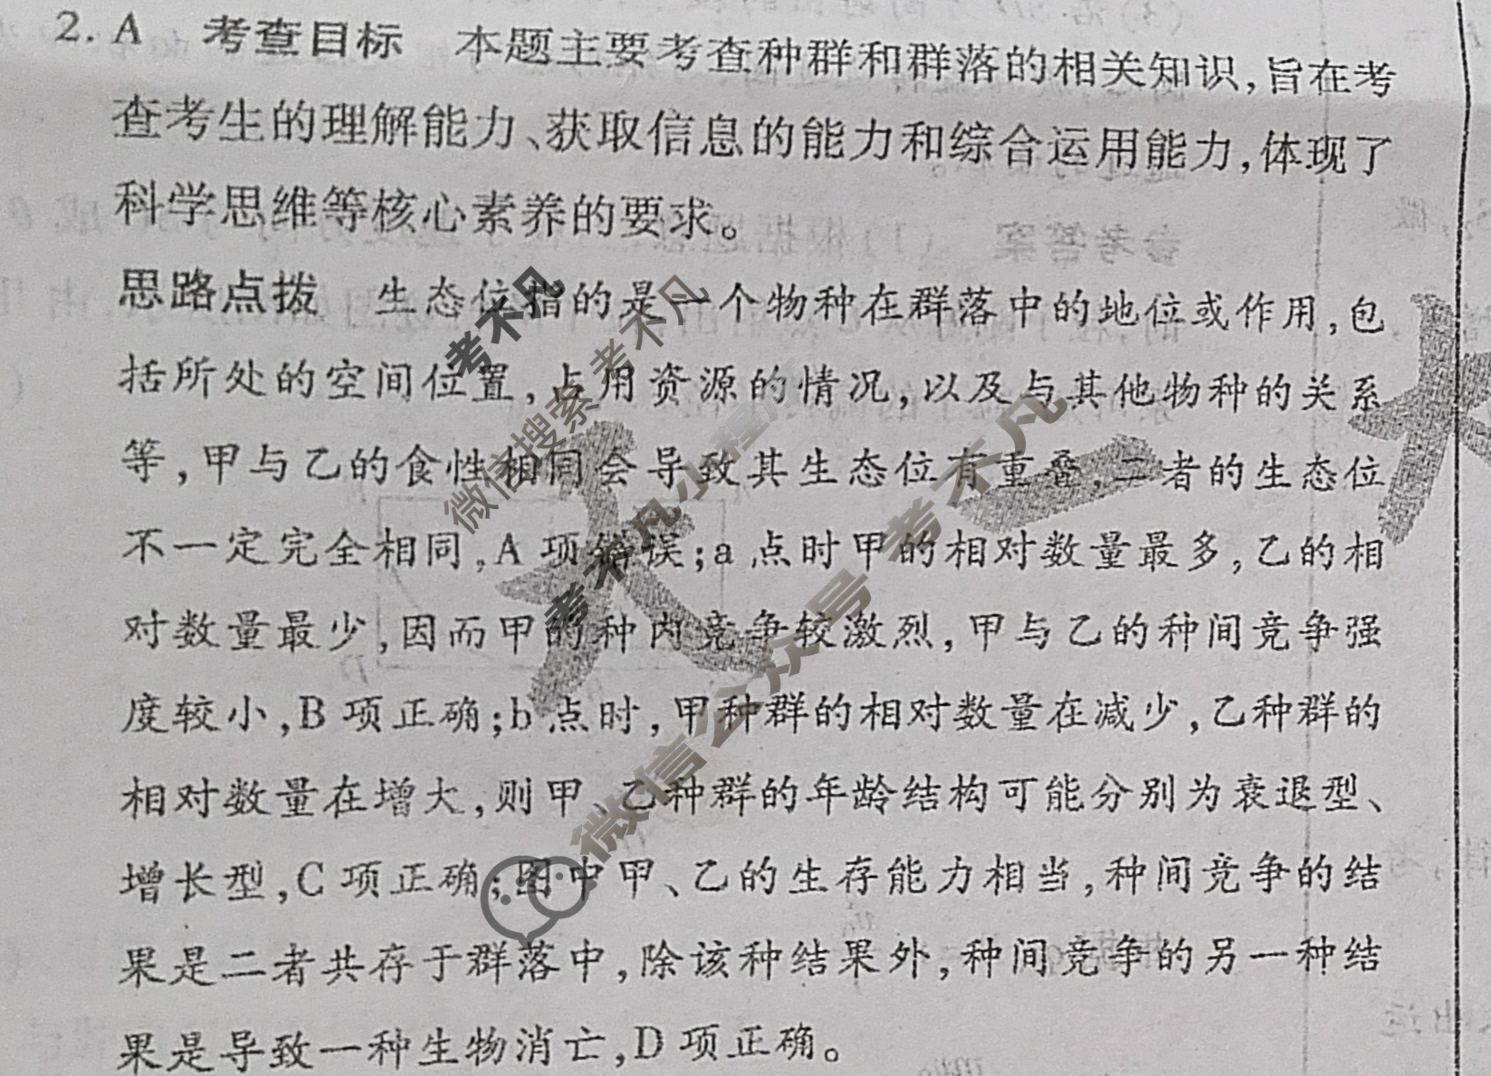 2. A 考查目标 本题主要考查种群和群落的相关知识,旨在考
查考生的理解能力、获取信息的能力和综合运用能力,体现了
科学思维等核心素养的要求。
思路点拨 生态位指的是一个物种在群落中的地位或作用,包
括所处的空间位置,占用资源的情况,以及与其他物种的关系
等,甲与乙的食性相同会导致其生态位有重叠,二者的生态位
不一定完全相同,A 项错误;a 点时甲的相对数量最多,乙的相
对数量最少,因而甲的种内竞争较激烈,甲与乙的种间竞争强
度较小,B 项正确;b 点时,甲种群的相对数量在减少,乙种群的
相对数量在增大,则甲、乙种群的年龄结构可能分别为衰退型、
增长型,C 项正确;图中甲、乙的生存能力相当,种间竞争的结
果是二者共存于群落中,除该种结果外,种间竞争的另一种结
果是导致一种生物消亡,D 项正确。
考不凡
考不凡
微信搜索
考不凡小程
微信公众号 考不凡